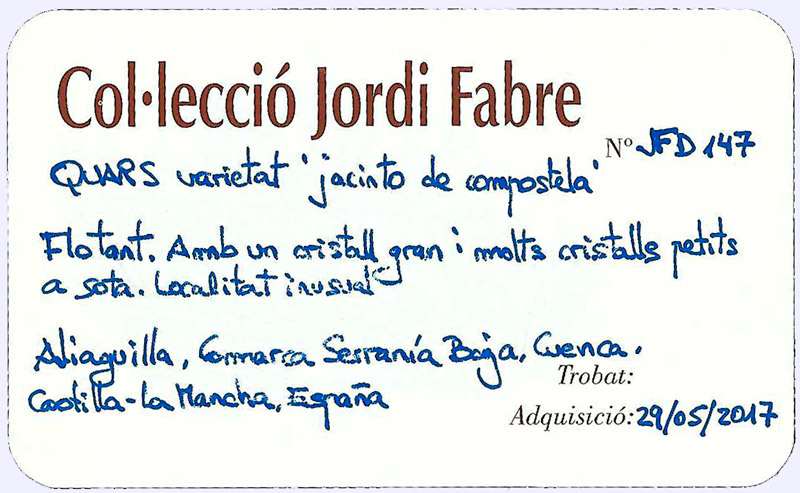 Col·lecció Jordi Fabre
Nº JFD 147
QUARS varietat 'jacinto de compostela'
Flotant. Amb un cristall gran i molts cristalls petits
a sota. Localitat inusual
Aliaguilla, Comarca Serranía Baja, Cuenca.
Castilla-la Mancha, España
Trobat:
Adquisició: 29/05/2017